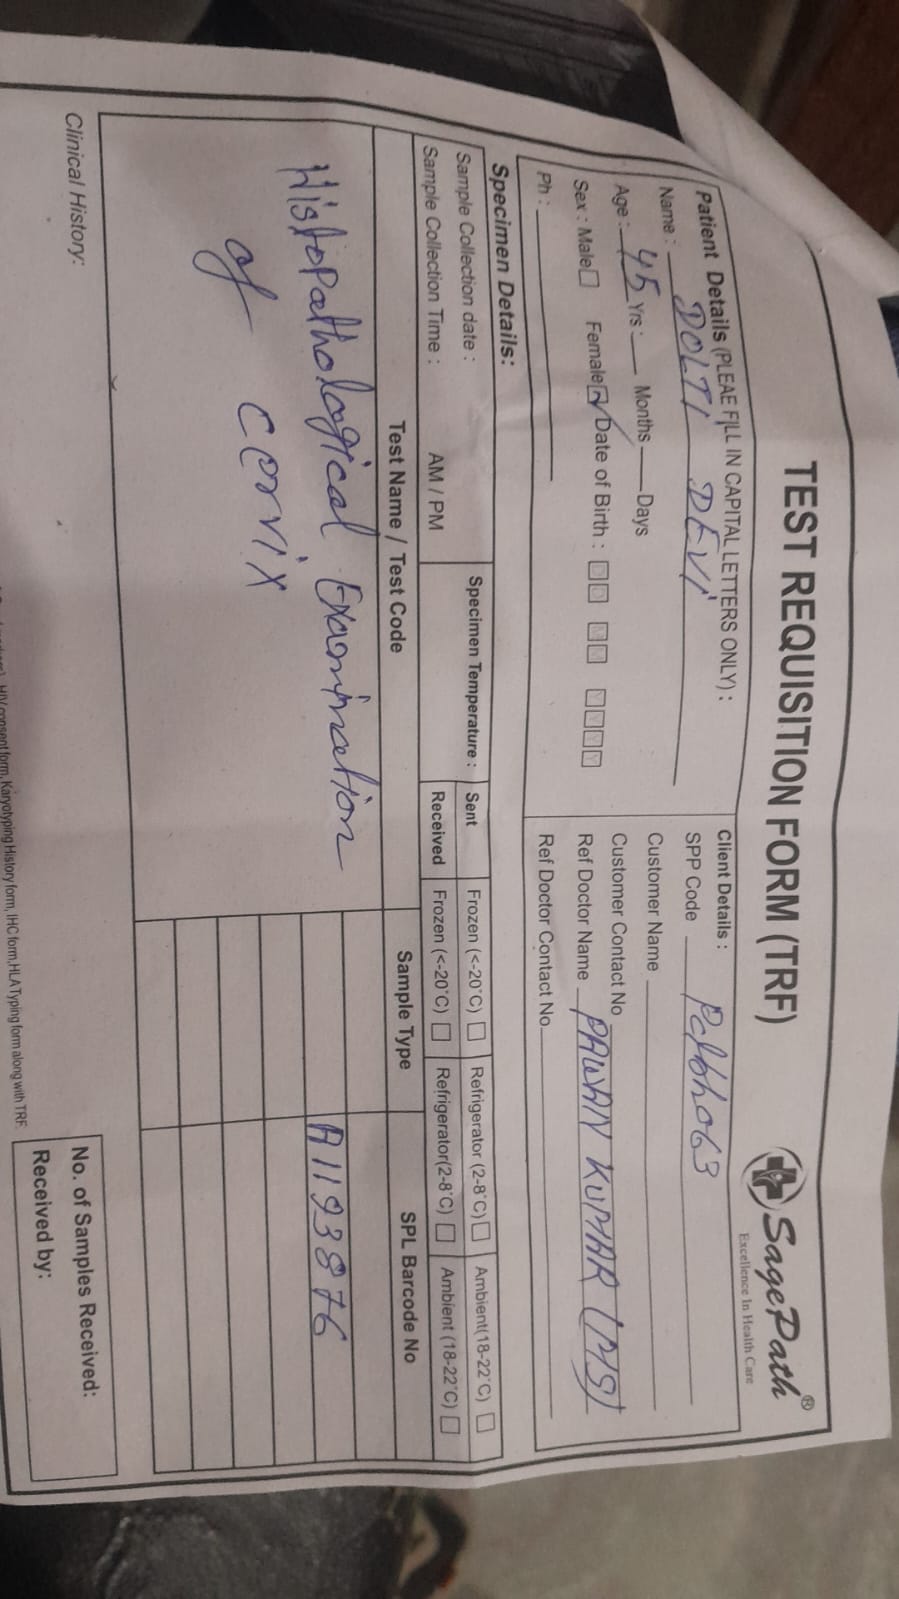 TEST REQUISITION FORM (TRF)
SagePath®
Excellence In Health Care
Patient Details (PLEAE FILL IN CAPITAL LETTERS ONLY) :
Name : DOLTI DEVI
Age : 45 Yrs : Months Days
Sex : Male Female Date of Birth : D D M M Y Y Y Y
Ph :
Client Details :
SPP Code
Customer Name
Customer Contact No
Ref Doctor Name PAWAN KUMAR (MS)
Ref Doctor Contact No.
Specimen Details:
Sample Collection date :
Sample Collection Time : AM / PM
Specimen Temperature :
Sent Frozen (<-20°C) Refrigerator (2-8°C) Ambient(18-22°C)
Received Frozen (<-20°C) Refrigerator(2-8°C) Ambient (18-22°C)
Test Name / Test Code Sample Type SPL Barcode No
Histopathological Examination
of Cervix
A1193876
Clinical History:
HIV consent form, Karyotyping History form, IHC form, HLA Typing form along with TRF.
No. of Samples Received:
Received by: